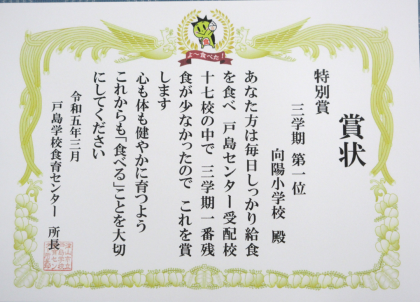 よ～食べた！
賞状
特別賞
三学期 第一位
向陽小学校 殿
あなた方は毎日しっかり給食
を食べ 戸島センター受配校
十七校の中で 三学期一番残
食が少なかったので これを賞
します
心も体も健やかに育つよう
これからも「食べる」ことを大切
にしてください
令和五年三月
戸島学校食育センター 所長